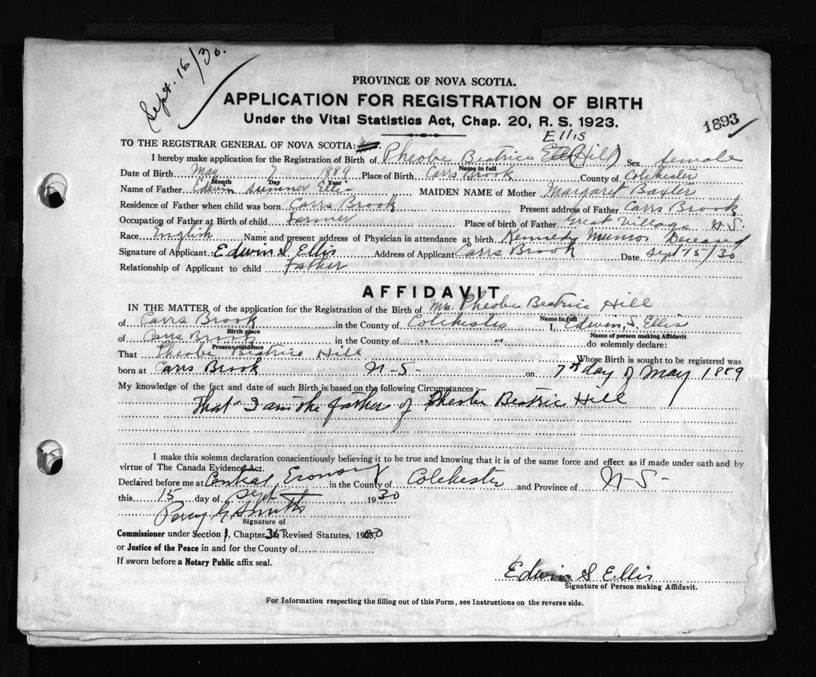 Sept. 16/30.
PROVINCE OF NOVA SCOTIA.
APPLICATION FOR REGISTRATION OF BIRTH
Under the Vital Statistics Act, Chap. 20, R. S. 1923.
1893
Ellis
TO THE REGISTRAR GENERAL OF NOVA SCOTIA:
I hereby make application for the Registration of Birth of Pheobe Beatrice (Hill) Sex female
Name in full
Date of Birth May 7 1889 Place of Birth Carrs Brook County of Colchester
Month Day Year
Name of Father Edwin Sumner Ellis MAIDEN NAME of Mother Margaret Baxter
Residence of Father when child was born Carrs Brook Present address of Father Carrs Brook
Occupation of Father at Birth of child Farmer Place of birth of Father Great Village N.S.
Race English Name and present address of Physician in attendance at birth Kennedy Munroe Deceased
Signature of Applicant: Edwin S Ellis Address of Applicant Carrs Brook Date Sept 15/30
Relationship of Applicant to child Father
AFFIDAVIT
IN THE MATTER of the application for the Registration of the Birth of Mrs. Pheobe Beatrice Hill
Name in full
of Carrs Brook in the County of Colchester I, Edwin, S. Ellis
Birth place Name of person making Affidavit
of Carrs Brook in the County of " " do solemnly declare:
Present residence
That Pheobe Beatrice Hill Whose Birth is sought to be registered was
born at Carrs Brook N-S- on 7th day of May 1889
My knowledge of the fact and date of such Birth is based on the following Circumstances:—
That I am the father of Pheobe Beatrice Hill
I make this solemn declaration conscientiously believing it to be true and knowing that it is of the same force and effect as if made under oath and by
virtue of The Canada Evidence Act.
Declared before me at Central Economy in the County of Colchester and Province of N-S-
this 15 day of Sept 1930
Percy G Smith
Signature of
Commissioner under Section 3, Chapter Revised Statutes,
or Justice of the Peace in and for the County of
If sworn before a Notary Public affix seal.
Edwin S Ellis
Signature of Person making Affidavit.
For Information respecting the filling out of this Form, see Instructions on the reverse side.